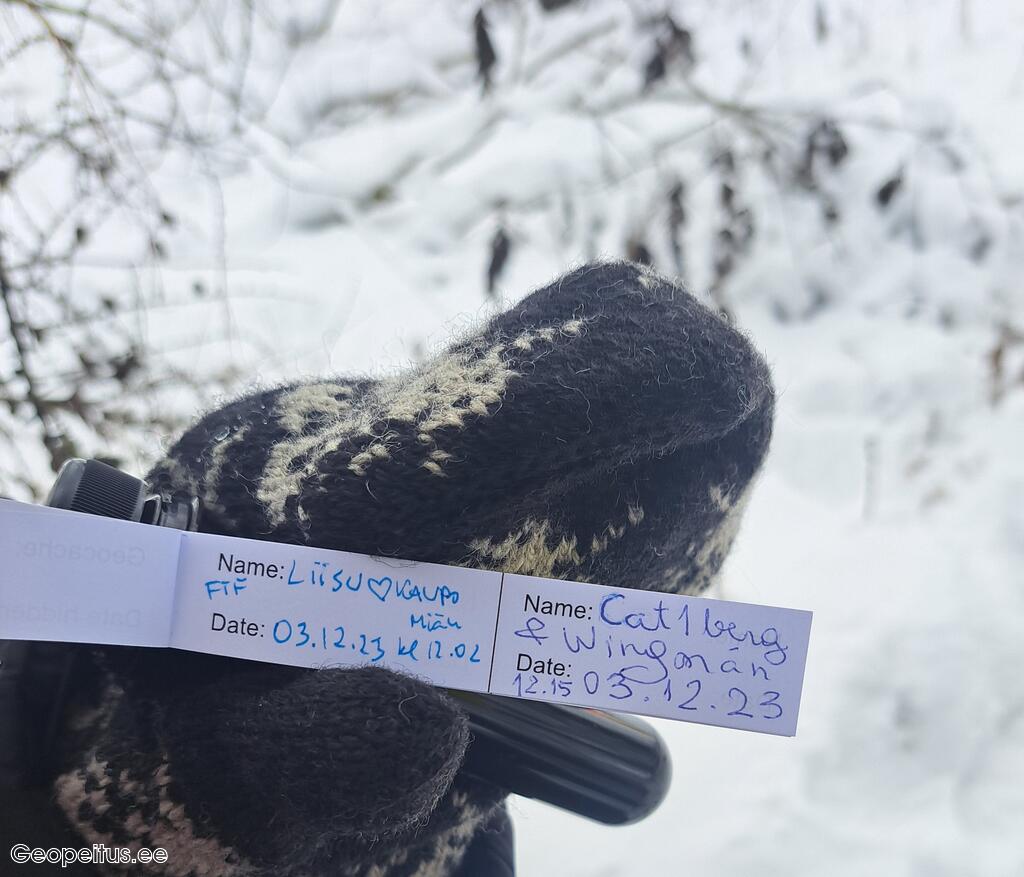 Geocache:
Date hidden
Name: Liisu♡KAUPO
FTF Miäu
Date: 03.12.23 kl 12.02
Name: Cat1berg
& Wingmän
Date:
12.15 03.12.23
Geopeitus.ee